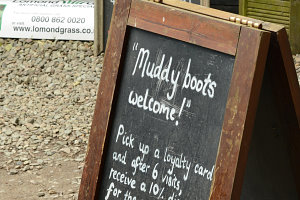 0800 862 0020
www.lomondgrass.co
"Muddy boots
welcome!"
Pick up a loyalty card
and after 6 visits,
receive a 10%
for the